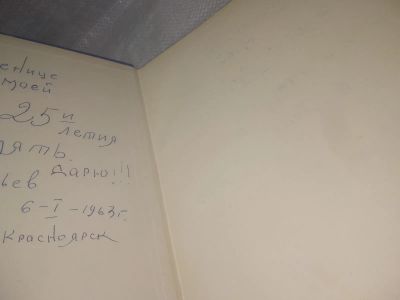 енице
моей
25 и
летия
дять.
ьев Дарю!!!
6-I-1963г.
Красноярск